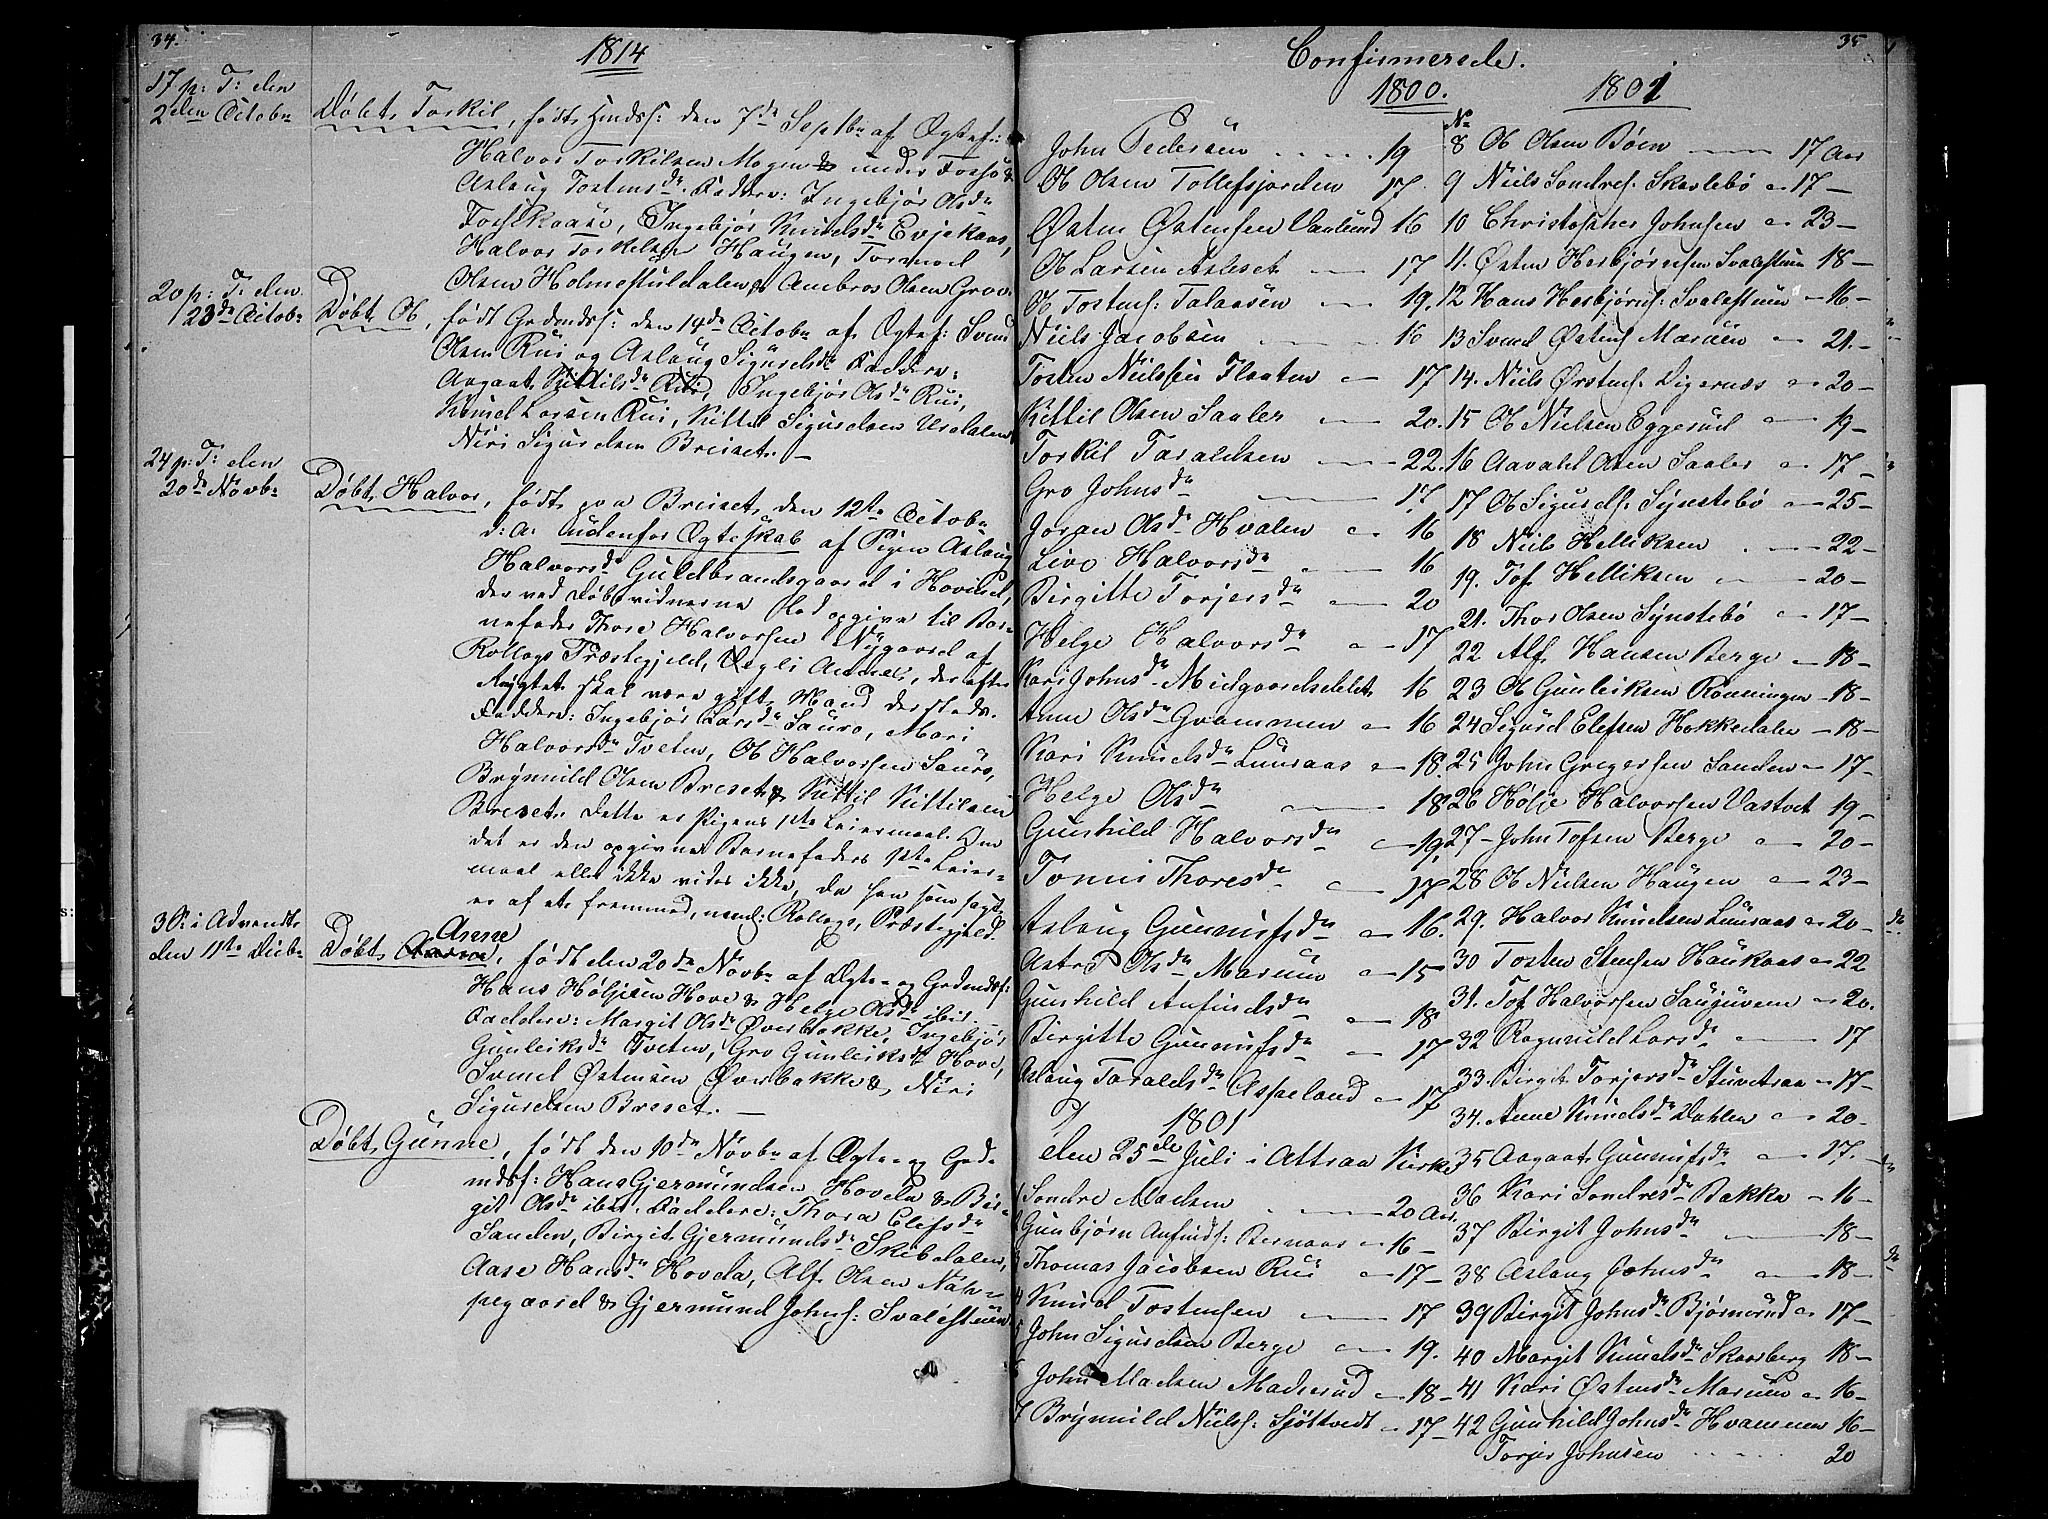 34.
1814
17 p: T: den
2den Octobr
Døbt Torkil, født Hindss: den 7de Septbr af Ægtef:
Halvor Torkilsen Mogen & under Fosso &
Aslaug Tostensdr. Faddere: Ingebjør Olsdr
Foslkaase, Ingebjør Knudsdr Evjekaas,
Halvor Torkelsen Haugen, Tormod
Olsen Holmestuldalen & Ambros Olsen Grov.
20 p: T: den
23de Octobr
Døbt Ol, født Grdmdsf: den 14de Octobr af Ægtef: Svend
Olsen Rui og Aslaug Sigurdsdr Faddere:
Aagaat Kittilsdr Rui, Ingebjør Olsdr Rui,
Knud Larsen Rui, Kittel Sigurdsen Urdalen
Niri Sigurdsen Breiset. —
24 p: T: den
20de Novbr
Døbt Halvor, født paa Breiset den 12te Octobr
d: A: udenfor Ægteskab af Pigen Aslaug
Halvorsdr Guldbrandsgaard i Hovind,
der ved Døbevidnerne lod opgive til Bar-
nefader Thore Halvorsen Nygaard af
Rollags Præstegjeld, Vegli Annex, der efter
Rygtet skal være gift Mand dersteds.
Faddere: Ingebjør Larsdr Sauro, Mari
Halvorsdr Tveten, Ol Halvorsen Sauro,
Brynuld Olsen Breset & Kittil Kittilsen
Breset. Dette er Pigens 1ste Leiermaal. Om
det er den opgivne Barnefaders 1ste Leier-
maal eller ikke vides ikke, da han som sagt
er af et fremmed, neml: Rollags, Præstegjeld.
3 S: i Advendt
den 11te Decbr
Anne
Døbt , født den 20de Novbr af Ægte- og Grdmdsf:
Hans Høljesen Hove & Helge Olsdr ibid.
Faddere: Margit Olsdr Øverbakke, Ingebjør
Gunleiksdr Tveten, Gro Gunleiksdr Hove,
Svend Østensen Øverbakke & Niri
Sigurdsen Breset. —
Døbt Gunne, født den 10de Novbr af Ægte- og Grd-
mdsf: Hans Gjermundsen Hovda & Bir-
git Olsdr ibid. Faddere: Thora Elefsdr
Sanden, Birgit Gjermundsdr Skibdalen,
Aase Hansdr Hovda, Alf Olsen Nør-
pegaard & Gjermund Johnsf: Svalestuen
35
Confirmerede.
1800.
John Pedersen 19
Ol Olsen Tollefsjorden 17.
Østen Østensen Vaalund 16
Ol Larsen Asleset 17
Ol Tostens: Talaasen 19.
Niels Jacobsen 16
Tosten Nielsen Flaaten 17
Kittil Olsen Saaler 20.
Torkil Taraldsen 22.
Gro Johnsdr 17.
Joran Olsdr Hvalen 16
Live Halvorsdr 16
Birgitte Torjersdr 20
Helge Halvorsdr 17
Kari Johnsdr Midgaardsdelet 16
Anne Olsdr Grammen 16
Kari Knudsdr Luuraas 18.
Helge Olsdr 18
Gunhild Halvorsdr 19.
Tonni Thoresdr 17
Aslaug Gunnufsdr 16.
Astri Olsdr Maruen 15
Gunhild Anfindsdr 18
Birgitte Gunnufsdr 17
Aslaug Taraldsdr Aspeland 17
1801
den 25de Juli i Attraa Kirke
1 Sondre Madsen 20 Aar.
2 Gunbjørn Anfinds: Bernaas 16 —
3 Thomas Jacobsen Rui 17 —
4 Knud Tostensen 17
5 John Sigurdsen Berge 19.
6 John Madsen Maderud 18 —
7 Brynuld Niels: Sjøttvedt 17 —
1801
No
8 Ol Olsen Bøen 17 Aar
9 Niels Sondres: Skarlebø 17 —
10 Christopher Johnsen 23 —
11. Østen Herbjørnsen Svalestuen 18 —
12 Hans Herbjørns: Svalestuen 16 —
13 Svend Østens: Maruen 21. —
14. Niels Ørstens: Digernæs 20 —
15 Ol Nielsen Eggerud 19 —
16 Aavald Olsen Saaler 17 —
17 Ol Sigurds: Synstebø 25 —
18 Niels Helliksen 22 —
19. Tof Helliksen 20 —
21. Thor Olsen Synstebø 17 —
22 Alf Hansen Berge 18 —
23 Ol Gunleiksen Rønningen 18 —
24 Sigurd Elefsen Hokkedalen 18 —
25 John Gregersen Sanden 17 —
26 Hølje Halvorsen Vastvet 19 —
27 — John Tofsen Berge 20 —
28 Ol Nielsen Haugen 23 —
29. Halvor Knudsen Luuraas 20 —
30 Tosten Stensen Haukaas 22
31. Tof Halvorsen Saujuvene 20.
32 Ragnuld Larsdr 17
33. Birgit Torjersdr Stuvetraa 17 —
34. Anne Knudsdr Dahlen 20 —
35 Aagaat Gunnufsdr 17. —
36 Kari Sondresdr Bakke 16 —
37 Birgit Johnsdr 18 —
38 Aslaug Johnsdr 18 —
39 Birgit Johnsdr Bjørnerud 17 —
40 Margit Knudsdr Skarsberg 18 —
41 Kari Østensdr Maruen 16 —
42 Gunhild Johnsdr Hvammen 16 —
Torjer Johnsen 20